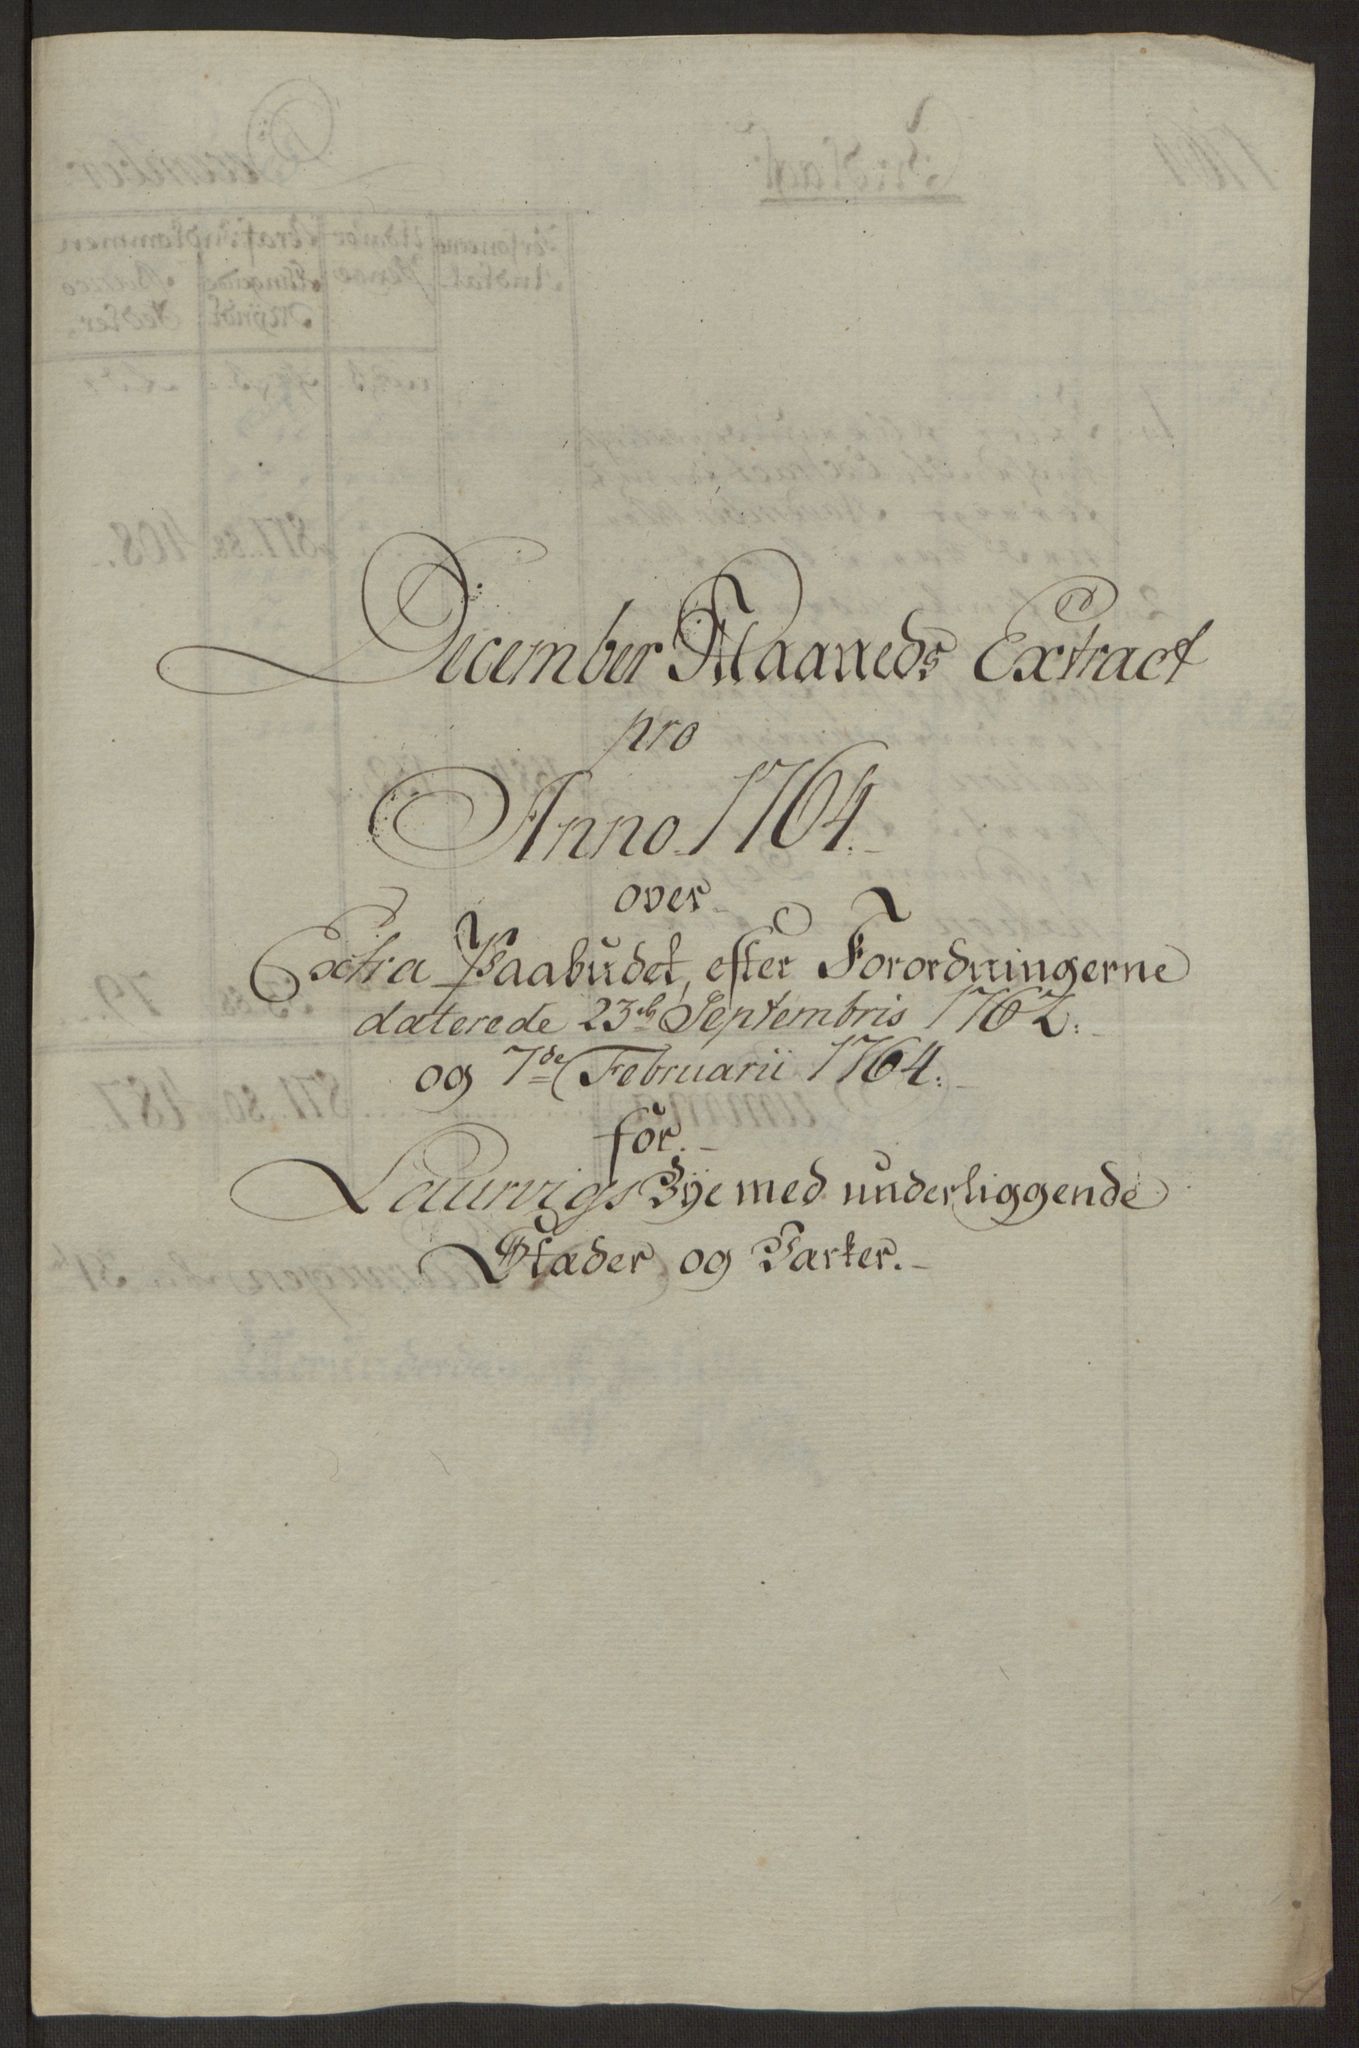 December Maaneds Extract
pro
Anno 1764.
over
Extra Paabudet, efter Forordningerne
daterede 23de Septembris 1762.
og 7de Februarii 1764.
for
Laurvigs Bye med underliggende
Stæder og Parker.